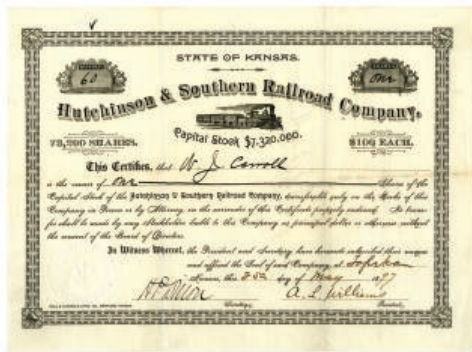 STATE OF KANSAS.
60
One
Hutchinson & Southern Railroad Company.
Capital Stock $7,320,000.
73,200 SHARES.
$100 EACH.
This Certifies, that W J Carroll
is the owner of One Share of the
Capital Stock of the Hutchinson & Southern Railroad Company, transferable only on the Books of this
Company in Person or by Attorney, on the surrender of this Certificate properly endorsed. No trans-
fer shall be made by any Stockholder liable to this Company as principal debtor or otherwise without
the consent of the Board of Directors.
In Witness Whereof, the President and Secretary have hereunto subscribed their names
and affixed the Seal of said Company, at Topeka
Kansas, this day of May 1897
A. L. Williams
Secretary.
President.